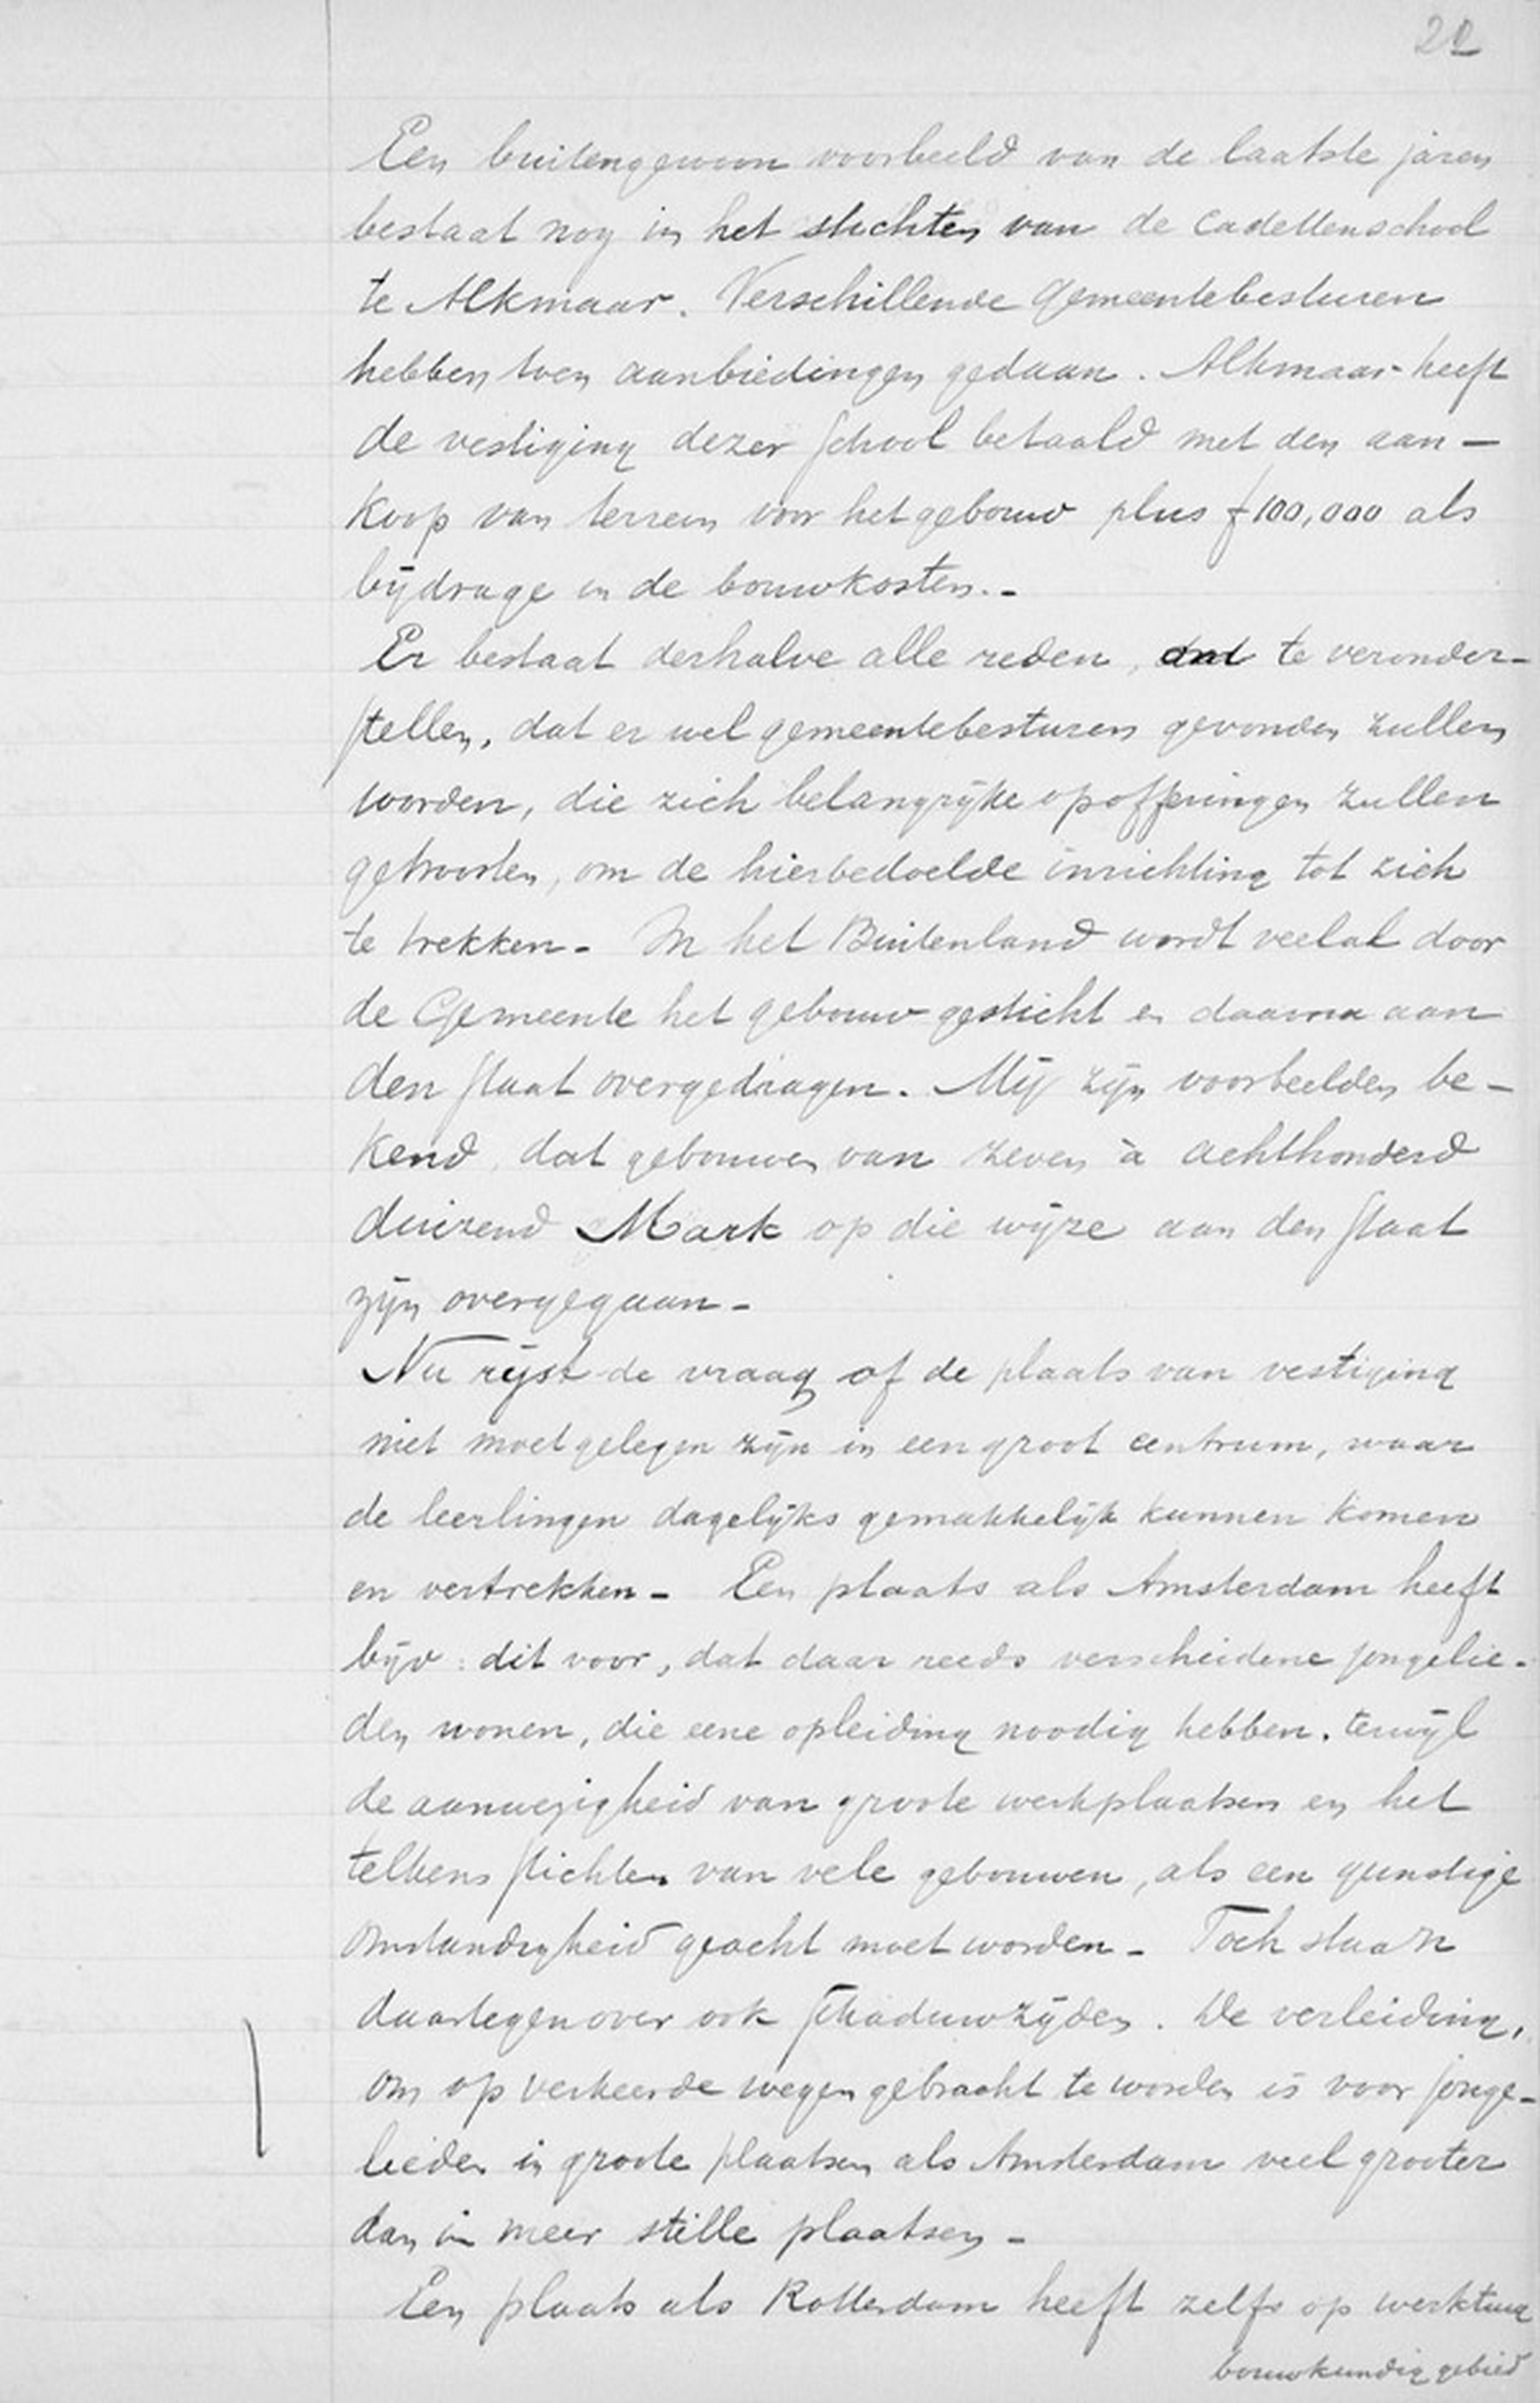 20
Een buitengewoon voorbeeld van de laatste jaren
bestaat nog in het stichten van de Cadettenschool
te Alkmaar. Verschillende Gemeentebesturen
hebben toen aanbiedingen gedaan. Alkmaar heeft
de vestiging dezer School betaald met den aan-
koop van terrein voor het gebouw plus ƒ100,000 als
bijdrage in de bouwkosten.-
Er bestaat derhalve alle reden, om te veronder-
stellen, dat er wel gemeentebesturen gevonden zullen
worden, die zich belangrijke opofferingen zullen
getroosten, om de hierbedoelde inrichting tot zich
te trekken- In het Buitenland wordt veelal door
de Gemeente het gebouw gesticht en daarna aan
den Staat overgedragen. Mij zijn voorbeelden be-
kend, dat gebouwen van zeven à achthonderd
duizend Mark op die wijze aan den Staat
zijn overgegaan-
Nu rijst de vraag of de plaats van vestiging
niet moet gelegen zijn in een groot centrum, waar
de leerlingen dagelijks gemakkelijk kunnen komen
en vertrekken- Een plaats als Amsterdam heeft
bijv: dit voor, dat daar reeds verscheidene jongelie-
den wonen, die eene opleiding noodig hebben, terwijl
de aanwezigheid van groote werkplaatsen en het
telkens stichten van vele gebouwen, als een gunstige
omstandigheid geacht moet worden- Toch staan
daartegenover ook Schaduwzijden. De verleiding,
om op verkeerde wegen gebracht te worden is voor jonge-
lieden in groote plaatsen als Amsterdam veel grooter
dan in meer stille plaatsen-
Een plaats als Rotterdam heeft zelfs op werktuig
bouwkundig gebied